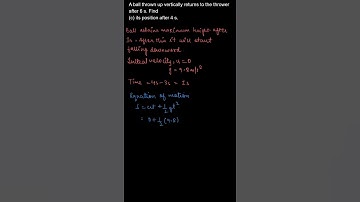 A ball thrown up vertically returns to the thrower
after 6 s. Find
(c) its position after 4 s.
Ball attains maximum height after
3s. After this it will start
falling downward
Initial velocity, u = 0
g = 9.8 m/s²
Time = 4s - 3s = 1s
Equation of motion
S = ut + 1/2 gt²
= 0 + 1/2 (9.8)